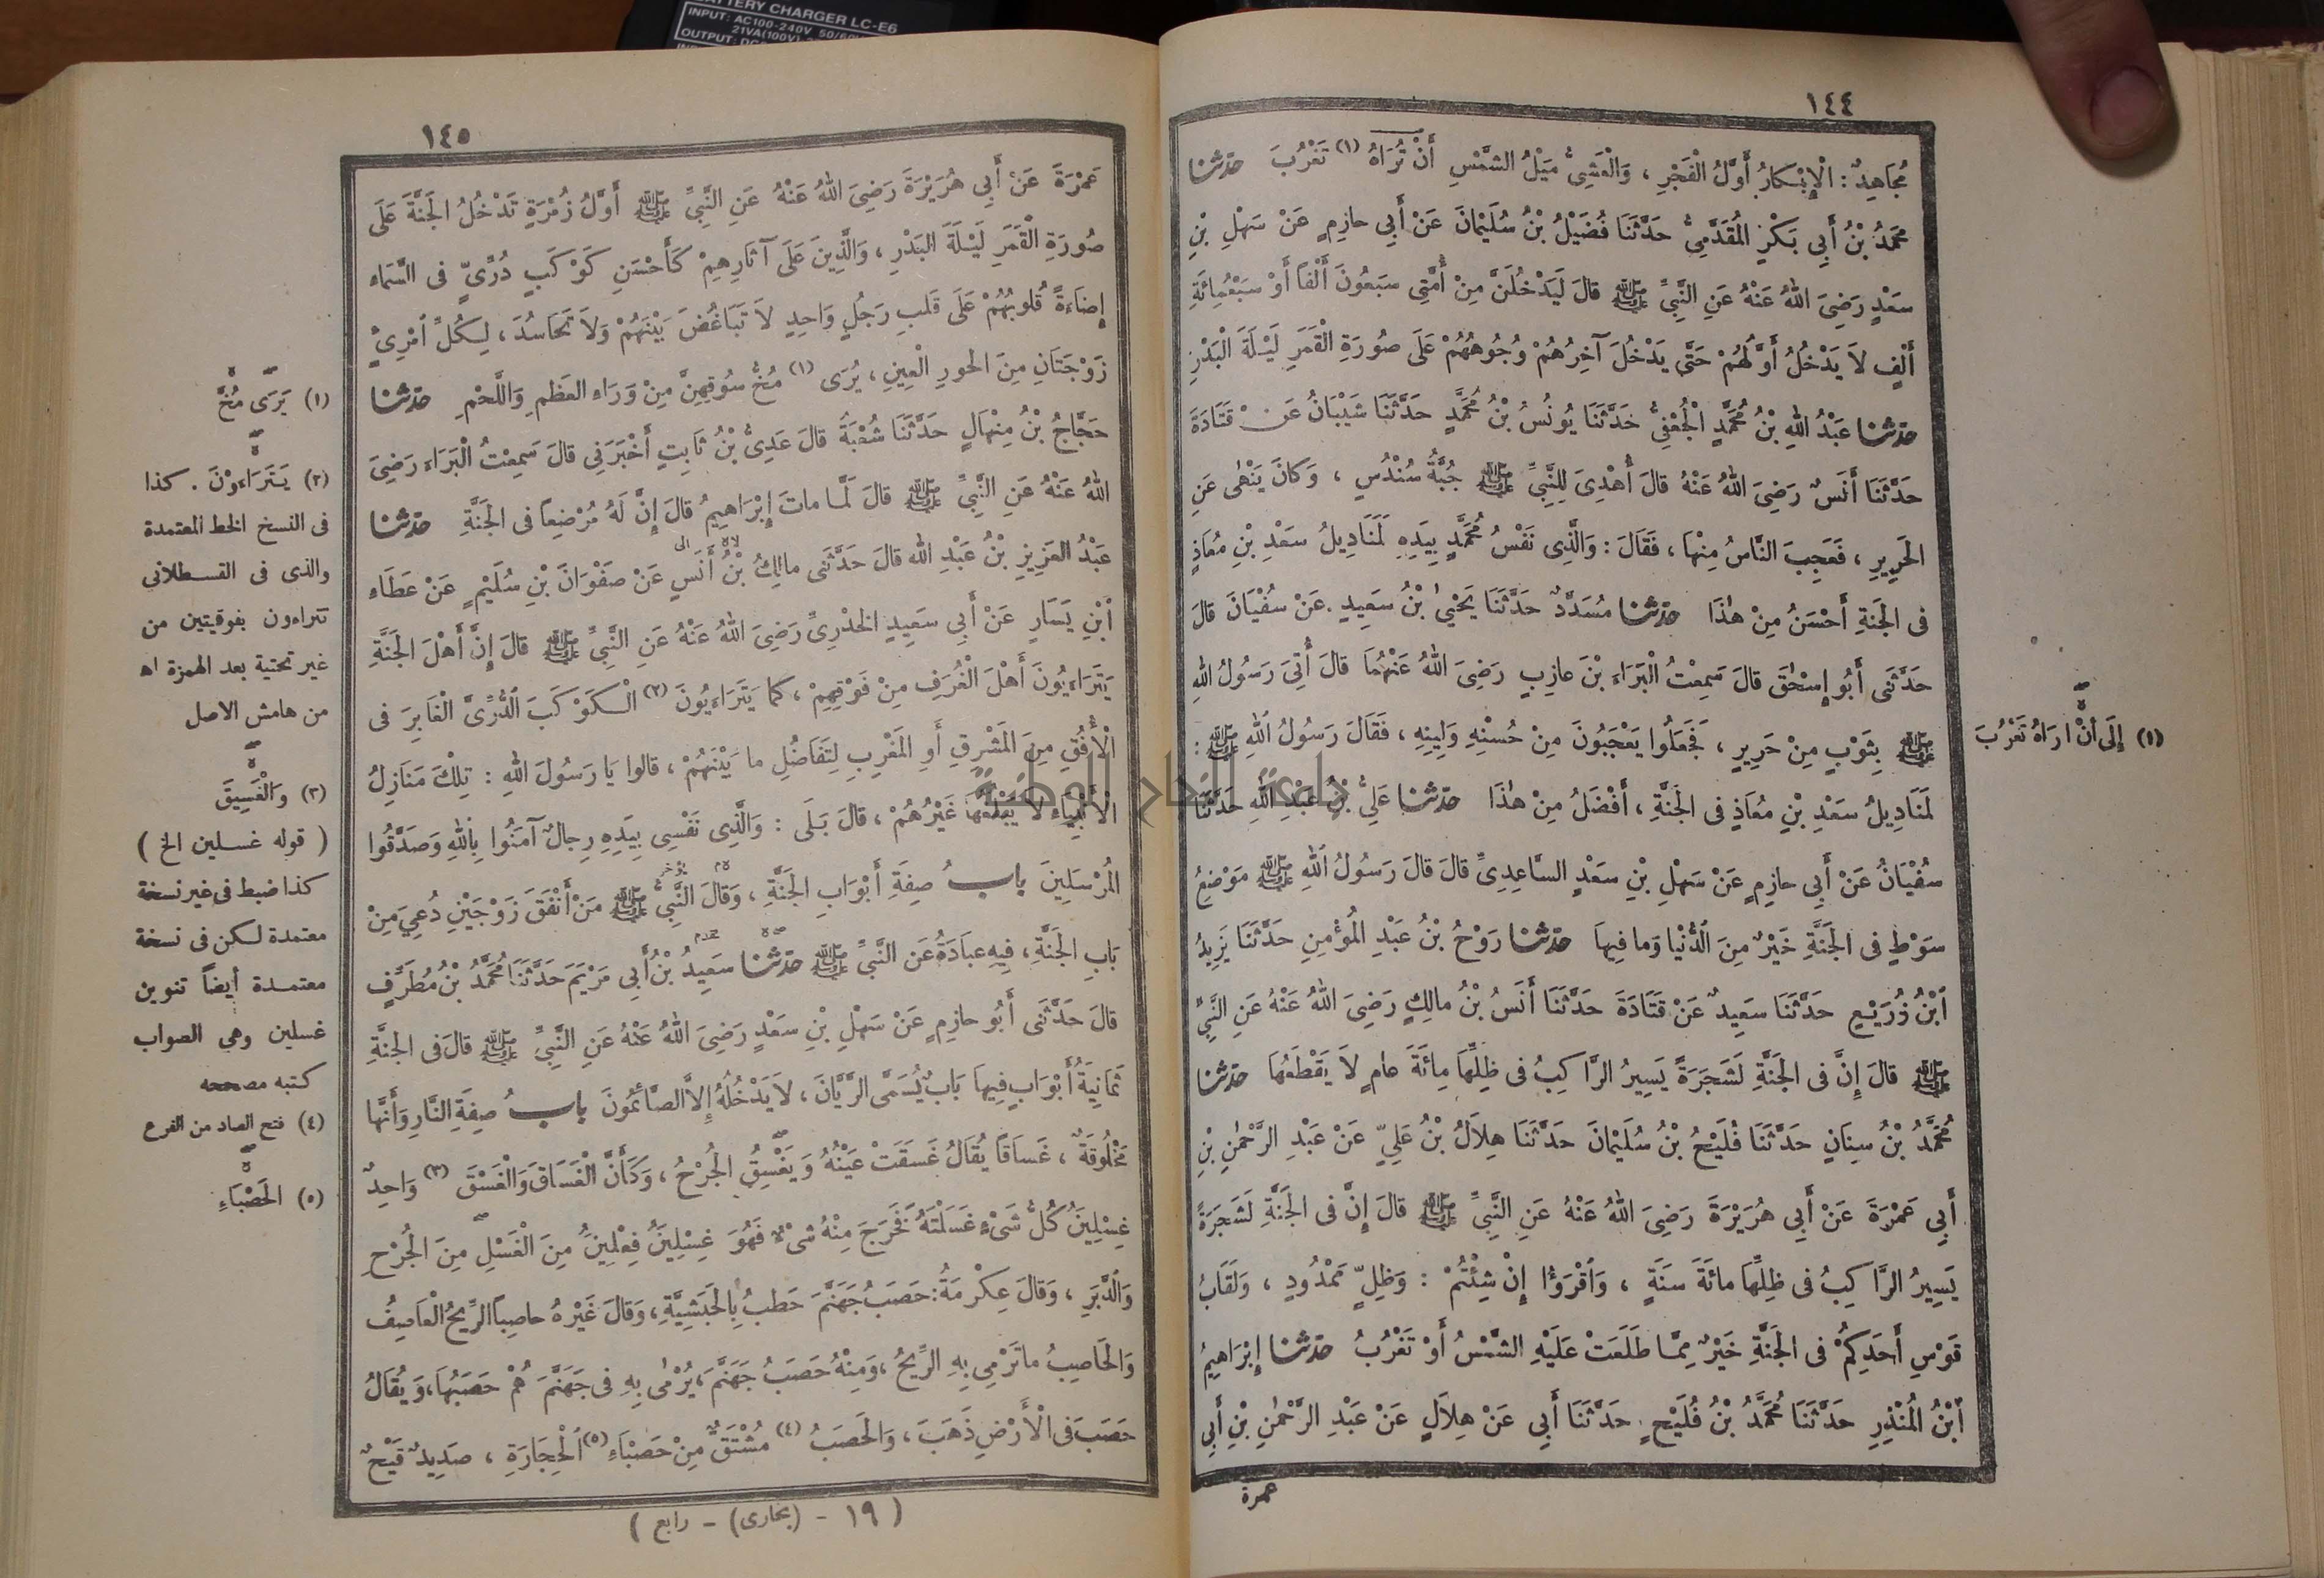 BATTERY CHARGER LC-E6
INPUT: AC100-240V 50/60
21VA(100V)-
OUTPUT: DC
١٤٤
مُجَاهِدٌ : الْإِبْكَارُ أَوَّلُ الْفَجْرِ ، وَالْعَشِىُّ مَيْلُ الشَّمْسِ أَنْ تُرَاهُ (١) تَغْرُبَ حدّثنا
مُحَمَّدُ بْنُ أَبِي بَكْرٍ الْمُقَدَّمِىُّ حَدَّثَنَا فُضَيْلُ بْنُ سُلَيْمَانَ عَنْ أَبِي حازِمٍ عَنْ سَهْلِ بْنِ
سَعْدٍ رَضِىَ اللهُ عَنْهُ عَنِ النَّبِيِّ ﷺ قالَ لَيَدْخُلَنَّ مِنْ أُمَّتِى سَبْعُونَ أَلْفاً أَوْ سَبْعُمِائَةِ
أَلْفٍ لاَ يَدْخُلُ أَوَّلُهُمْ حَتَّى يَدْخُلَ آخِرُهُمْ وُجُوهُهُمْ عَلَى صُورَةِ الْقَمَرِ لَيْلَةَ الْبَدْرِ
حدّثنا عَبْدُ اللهِ بْنُ مُحَمَّدٍ الْجُعْفِىُّ حَدَّثَنَا يُونُسُ بْنُ مُحَمَّدٍ حَدَّثَنَا شَيْبَانُ عَنْ قَتَادَةَ
حَدَّثَنَا أَنَسٌ رَضِىَ اللهُ عَنْهُ قالَ أُهْدِىَ لِلنَّبِيِّ ﷺ جُبَّةُ سُنْدُسٍ ، وَكانَ يَنْهٰى عَنِ
الْحَرِيرِ ، فَعَجِبَ النَّاسُ مِنْهَا ، فَقَالَ : وَالَّذِى نَفْسُ مُحَمَّدٍ بِيَدِهِ لَمَنَادِيلُ سَعْدِ بْنِ مُعَاذٍ
فى الْجَنَّةِ أَحْسَنُ مِنْ هٰذَا حدّثنا مُسَدَّدٌ حَدَّثَنَا يَحْيىٰ بْنُ سَعِيدٍ عَنْ سُفْيَانَ قالَ
حَدَّثَنِى أَبُو إِسْحٰقَ قالَ سَمِعْتُ الْبَرَاءَ بْنَ عازِبٍ رَضِىَ اللهُ عَنْهُمَا قالَ أُتِىَ رَسُولُ اللهِ
ﷺ بِثَوْبٍ مِنْ حَرِيرٍ ، فَجَعَلُوا يَعْجَبُونَ مِنْ حُسْنِهِ وَلِينِهِ ، فَقَالَ رَسُولُ اللهِ ﷺ :
لَمَنَادِيلُ سَعْدِ بْنِ مُعَاذٍ فى الْجَنَّةِ ، أَفْضَلُ مِنْ هٰذَا حدّثنا عَلِىُّ بْنُ عَبْدِ اللهِ حَدَّثَنَا
سُفْيَانُ عَنْ أَبِي حازِمٍ عَنْ سَهْلِ بْنِ سَعْدٍ السَّاعِدِىِّ قالَ قالَ رَسُولُ اللهِ ﷺ مَوْضِعُ
سَوْطٍ فى الْجَنَّةِ خَيْرٌ مِنَ الدُّنْيَا وَما فِيهَا حدّثنا رَوْحُ بْنُ عَبْدِ الْمُؤْمِنِ حَدَّثَنَا يَزِيدُ
ابْنُ زُرَيْعٍ حَدَّثَنَا سَعِيدٌ عَنْ قَتَادَةَ حَدَّثَنَا أَنَسُ بْنُ مالِكٍ رَضِىَ اللهُ عَنْهُ عَنِ النَّبِيِّ
ﷺ قالَ إِنَّ فى الْجَنَّةِ لَشَجَرَةً يَسِيرُ الرَّاكِبُ فى ظِلِّهَا مِائَةَ عامٍ لاَ يَقْطَعُهَا حدّثنا
مُحَمَّدُ بْنُ سِنَانٍ حَدَّثَنَا فُلَيْحُ بْنُ سُلَيْمَانَ حَدَّثَنَا هِلاَلُ بْنُ عَلِيٍّ عَنْ عَبْدِ الرَّحْمٰنِ بْنِ
أَبِي عَمْرَةَ عَنْ أَبِي هُرَيْرَةَ رَضِىَ اللهُ عَنْهُ عَنِ النَّبِيِّ ﷺ قالَ إِنَّ فى الْجَنَّةِ لَشَجَرَةً
يَسِيرُ الرَّاكِبُ فى ظِلِّهَا مائَةَ سَنَةٍ ، وَاقْرَؤُا إِنْ شِئْتُمْ : وَظِلٍّ مَمْدُودٍ ، وَلَقَابُ
قَوْسِ أَحَدِكُمْ فى الْجَنَّةِ خَيْرٌ مِمَّا طَلَعَتْ عَلَيْهِ الشَّمْسُ أَوْ تَغْرُبُ حدّثنا إِبْرَاهِيمُ
ابْنُ الْمُنْذِرِ حَدَّثَنَا مُحَمَّدُ بْنُ فُلَيْحٍ حَدَّثَنَا أَبِي عَنْ هِلاَلٍ عَنْ عَبْدِ الرَّحْمٰنِ بْنِ أَبِي
عمرة
(١) إِلَى أَنْ أَرَاهُ تَغْرُبَ
جامعة النجاح الوطنية
١٤٥
عَمْرَةَ عَنْ أَبِي هُرَيْرَةَ رَضِىَ اللهُ عَنْهُ عَنِ النَّبِيِّ ﷺ أَوَّلُ زُمْرَةٍ تَدْخُلُ الْجَنَّةَ عَلَى
صُورَةِ الْقَمَرِ لَيْلَةَ الْبَدْرِ ، وَالَّذِينَ عَلَى آثَارِهِمْ كَأَحْسَنِ كَوْكَبٍ دُرِّيٍّ فى السَّمَاءِ
إِضَاءَةً قُلُوبُهُمْ عَلَى قَلْبِ رَجُلٍ وَاحِدٍ لاَ تَبَاغُضَ بَيْنَهُمْ وَلاَ تَحَاسُدَ ، لِكُلِّ امْرِئٍ
زَوْجَتَانِ مِنَ الْحُورِ الْعِينِ ، يُرَى (١) مُخُّ سُوقِهِنَّ مِنْ وَرَاءِ الْعَظْمِ وَاللَّحْمِ حدّثنا
حَجَّاجُ بْنُ مِنْهَالٍ حَدَّثَنَا شُعْبَةُ قالَ عَدِىُّ بْنُ ثَابِتٍ أَخْبَرَنِى قالَ سَمِعْتُ الْبَرَاءَ رَضِىَ
اللهُ عَنْهُ عَنِ النَّبِيِّ ﷺ قالَ لَمَّا ماتَ إِبْرَاهِيمُ قالَ إِنَّ لَهُ مُرْضِعاً فى الْجَنَّةِ حدّثنا
عَبْدُ الْعَزِيزِ بْنُ عَبْدِ اللهِ قالَ حَدَّثَنِى مالِكُ بْنُ أَنَسٍ عَنْ صَفْوَانَ بْنِ سُلَيْمٍ عَنْ عَطَاءِ
ابْنِ يَسَارٍ عَنْ أَبِي سَعِيدٍ الْخُدْرِىِّ رَضِىَ اللهُ عَنْهُ عَنِ النَّبِيِّ ﷺ قالَ إِنَّ أَهْلَ الْجَنَّةِ
يَتَرَاءَيُونَ أَهْلَ الْغُرَفِ مِنْ فَوْقِهِمْ ، كما يَتَرَاءَيُونَ (٢) الْكَوْكَبَ الدُّرِّىَّ الْغَابِرَ فى
الْأُفُقِ مِنَ الْمَشْرِقِ أَوِ الْمَغْرِبِ لِتَفَاضُلِ ما بَيْنَهُمْ ، قالوا يَا رَسُولَ اللهِ : تِلْكَ مَنَازِلُ
الْأَنْبِيَاءِ لاَ يَبْلُغُهَا غَيْرُهُمْ ، قالَ بَلَى : وَالَّذِى نَفْسِى بِيَدِهِ رِجالٌ آمَنُوا بِاللهِ وَصَدَّقُوا
الْمُرْسَلِينَ باب صِفَةِ أَبْوَابِ الْجَنَّةِ ، وَقَالَ النَّبِيُّ ﷺ مَنْ أَنْفَقَ زَوْجَيْنِ دُعِيَ مِنْ
بَابِ الْجَنَّةِ ، فِيهِ عبَادَةُ عَنِ النَّبِيِّ ﷺ حدّثنا سَعِيدُ بْنُ أَبِي مَرْيَمَ حَدَّثَنَا مُحَمَّدُ بْنُ مُطَرِّفٍ
قالَ حَدَّثَنِى أَبُو حازِمٍ عَنْ سَهْلِ بْنِ سَعْدٍ رَضِىَ اللهُ عَنْهُ عَنِ النَّبِيِّ ﷺ قالَ فى الْجَنَّةِ
ثَمَانِيَةُ أَبْوَابٍ فِيهَا بَابٌ يُسَمَّى الرَّيَّانَ ، لاَ يَدْخُلُهُ إِلاَّ الصَّائِمُونَ باب صِفَةِ النَّارِ وَأَنَّهَا
مَخْلُوقَةٌ ، غَسَاقاً يُقَالُ غَسَقَتْ عَيْنُهُ وَيَغْسِقُ الْجُرْحُ ، وَكَأَنَّ الْغَسَاقَ وَالْغَسْقَ (٣) وَاحِدٌ
غِسْلِينُ كُلُّ شَىْءٍ غَسَلْتَهُ فَخَرَجَ مِنْهُ شَىْءٌ فَهُوَ غِسْلِينُ فِعْلِينُ مِنَ الْغَسْلِ مِنَ الْجُرْحِ
وَالدَّبَرِ ، وَقالَ عِكْرِمَةُ : حَصَبُ جَهَنَّمَ حَطَبُ بِالْحَبَشِيَّةِ ، وَقالَ غَيْرُهُ حاصِباً الرِّيحُ الْعَاصِفُ
وَالْحَاصِبُ ما تَرْمِي بِهِ الرِّيحُ ، وَمِنْهُ حَصَبُ جَهَنَّمَ ، يُرْمٰى بِهِ فى جَهَنَّمَ هُمْ حَصَبُهَا ، وَيُقَالُ
حَصَبَ فى الْأَرْضِ ذَهَبَ ، وَالْحَصَبُ (٤) مُشْتَقٌّ مِنْ حَصْبَاءِ (٥) الْحِجَارَةِ ، صَدِيدٌ قَيْحٌ
( ١٩ - (بخارى) - رابع )
(١) يَرَى مُخَّ
(٢) يَتَرَاءَوْنَ . كذا
فى النسخ الخط المعتمدة
والذى فى القسطلانى
تتراءون بفوقيتين من
غير تحتية بعد الهمزة اه
من هامش الاصل
(٣) وَالْغَسِيقَ
( قوله غسلين الخ )
كذا ضبط فى غير نسخة
معتمدة لكن فى نسخة
معتمدة أيضاً تنوين
غسلين وهى الصواب
كتبه مصححه
(٤) فتح الصاد من الفرع
(٥) الْحَصْبَاءِ